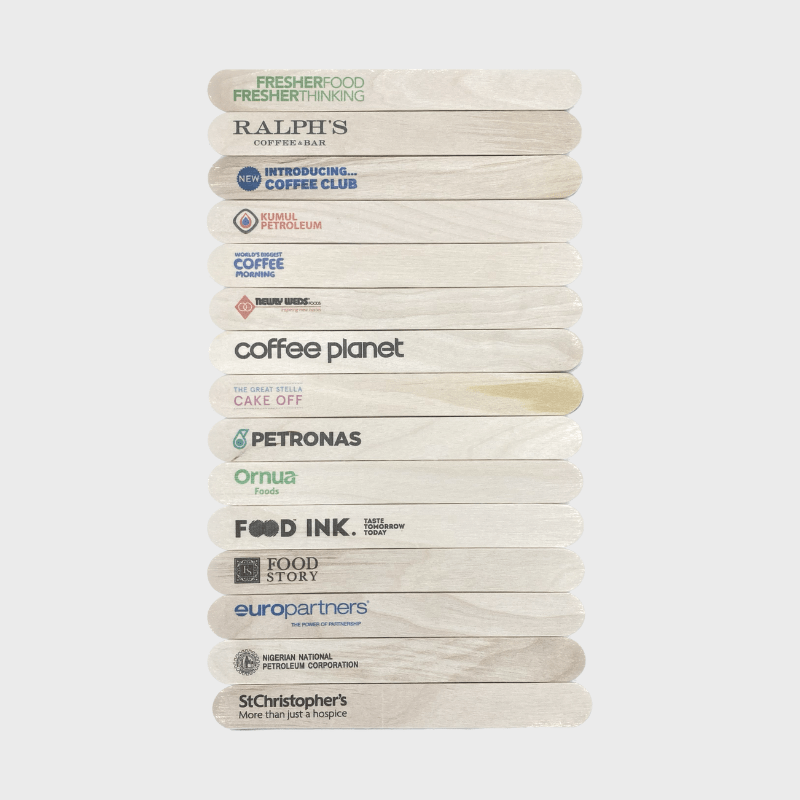 FRESHERFOOD
FRESHERTHINKING
RALPH'S
COFFEE & BAR
NEW
INTRODUCING...
COFFEE CLUB
KUMUL
PETROLEUM
WORLD'S BIGGEST
COFFEE
MORNING
NEWLY WEDS FOODS
coffee planet
THE GREAT STELLA
CAKE OFF
PETRONAS
Ornua
Foods
FOOD INK.
TASTE
TOMORROW
TODAY
FS
FOOD
STORY
europartners®
THE POWER OF PARTNERSHIP
NIGERIAN NATIONAL
PETROLEUM CORPORATION
StChristopher's
More than just a hospice